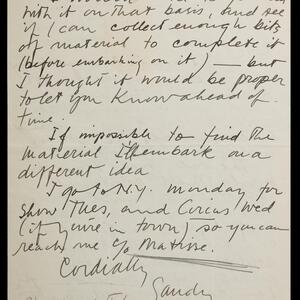 with it on that basis, and see
if I can collect enough bits
of material to complete it
(before embarking on it) — but
I thought it would be proper
to let you know ahead of
time.
If impossible to find the
material I'll embark on a
different idea
I go to N.Y. monday for
show Tues, and Circus Wed
(if you're in town) so you can
reach me c/o Matisse.
Cordially
Sandy